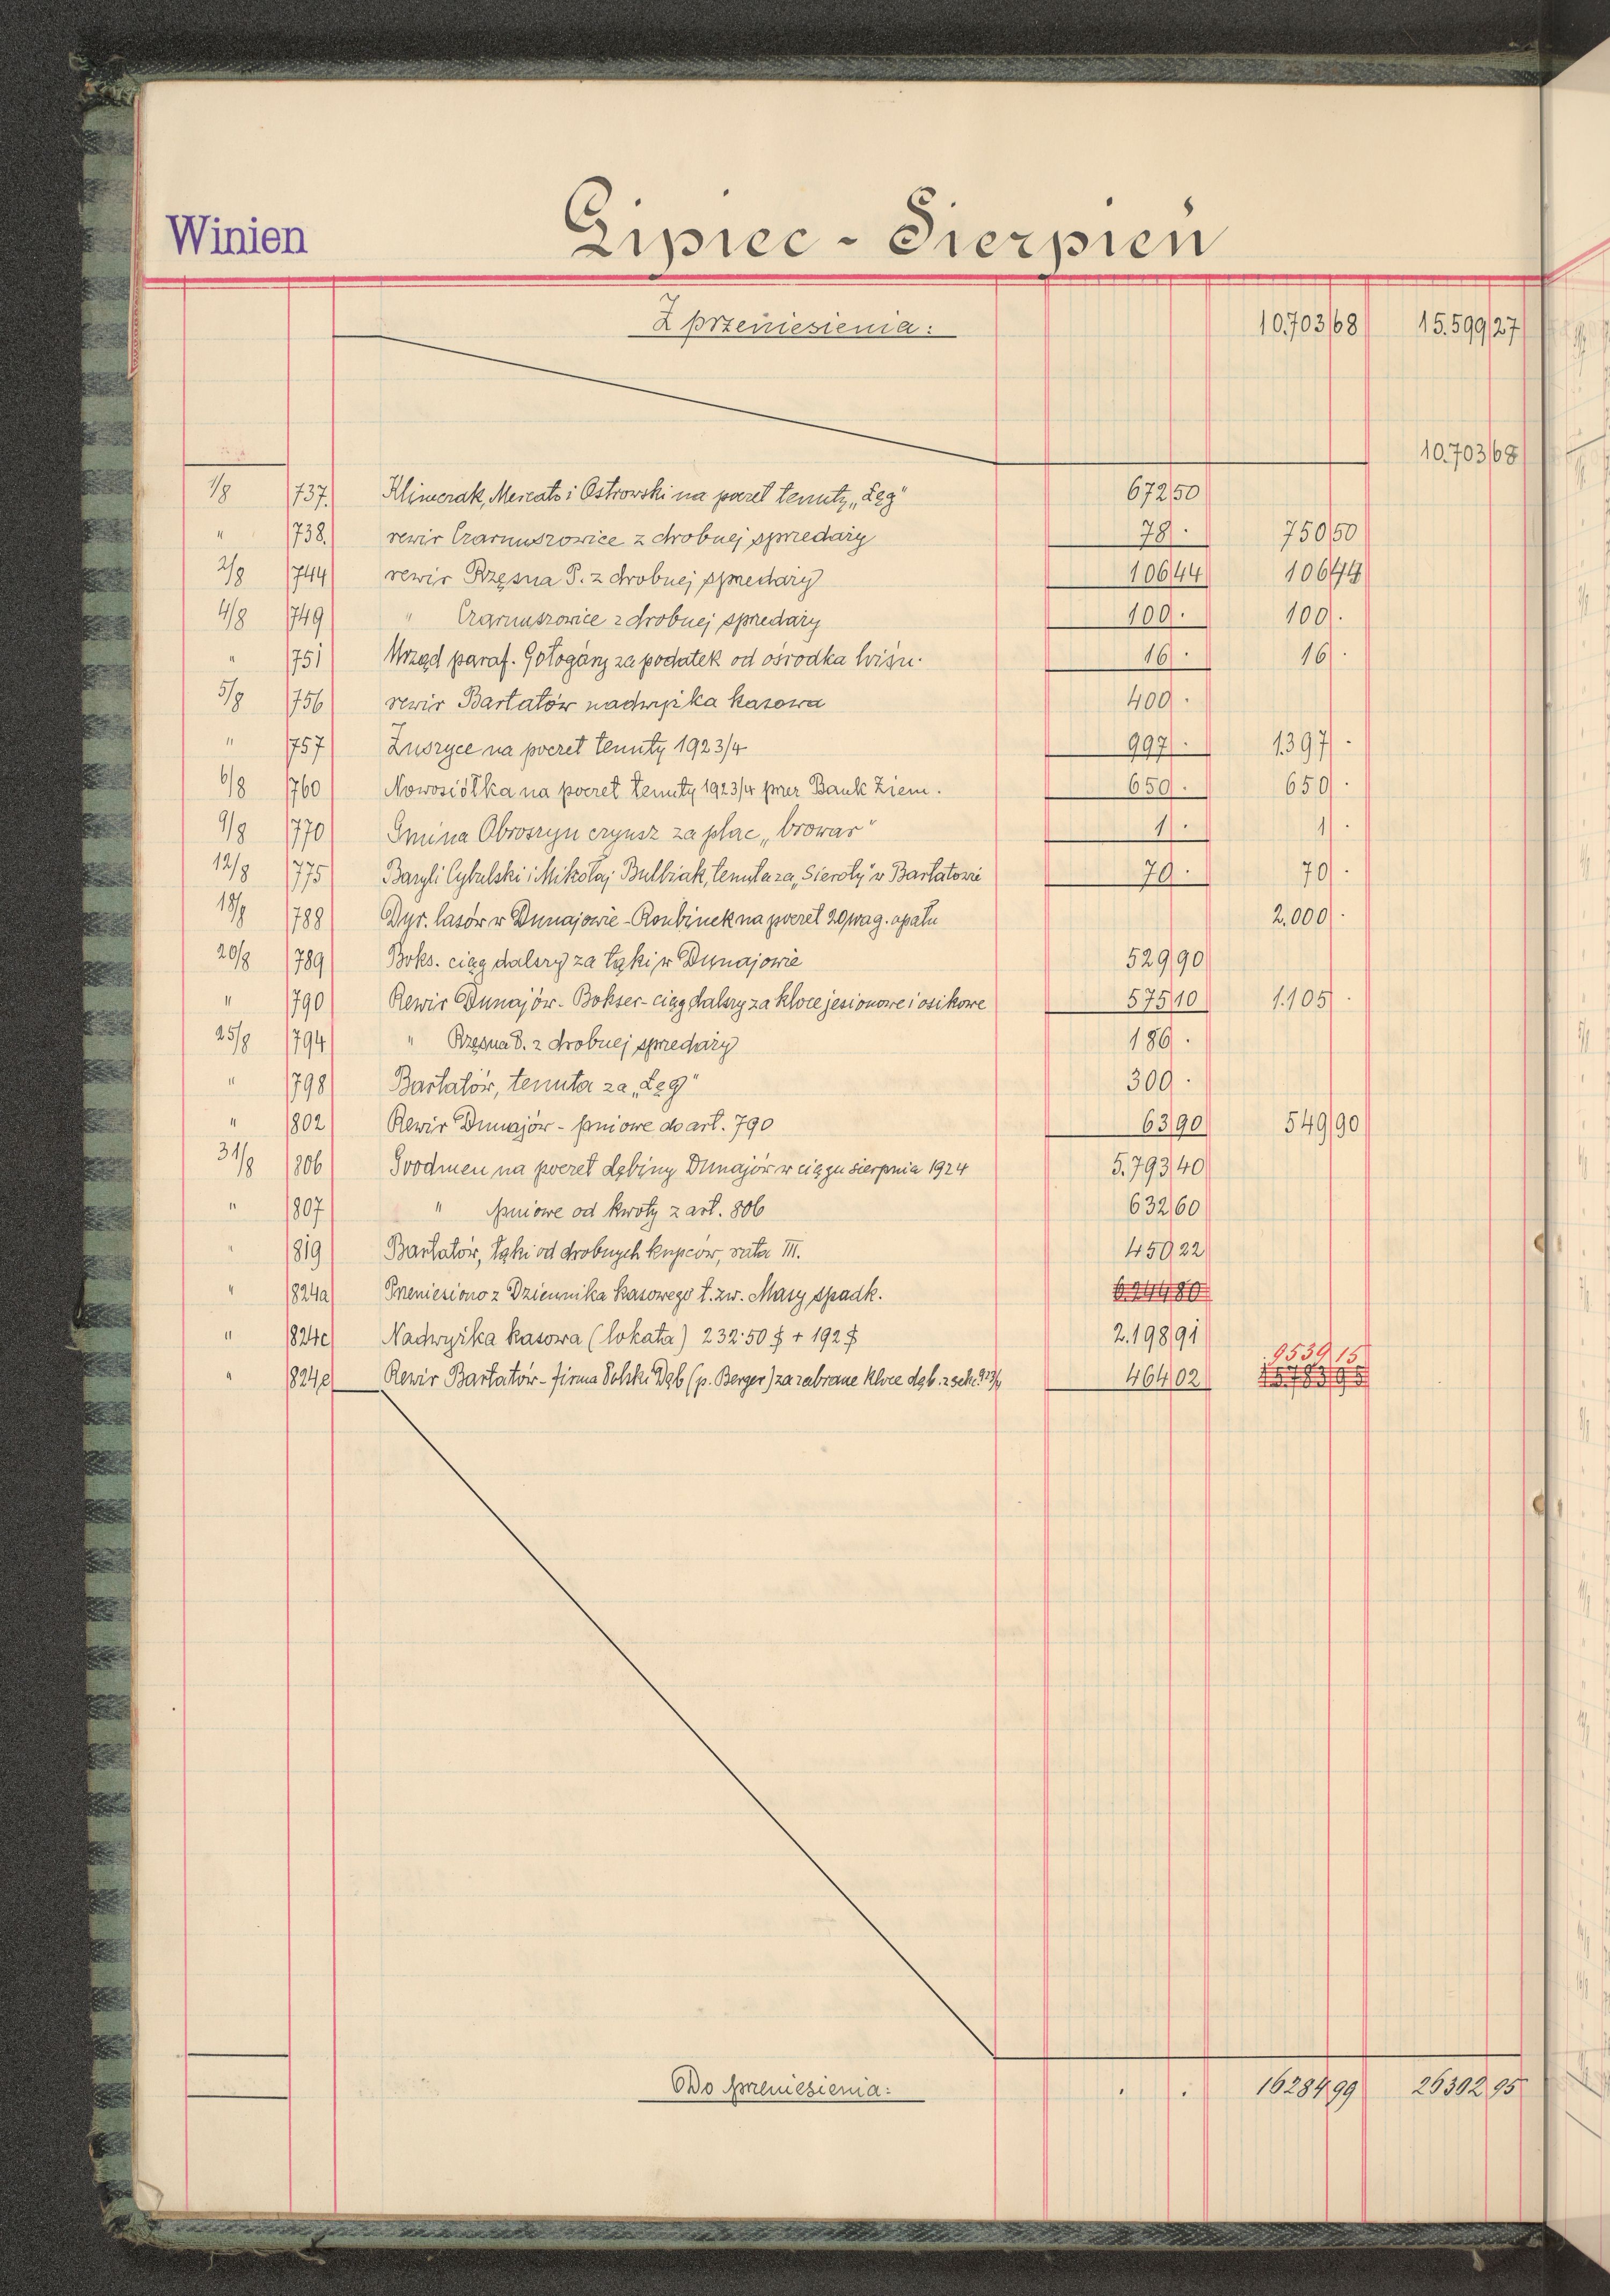 Winien Lipiec - Sierpień
Z przeniesienia: 10.703 68 15.599 27
10.703 68
1/8 737. Klimczak, Mercato i Ostrowski na poczet tenuty „Łęg" 672 50
" 738. rewir Czarnuszowice z drobnej sprzedaży 78 . 750 50
2/8 744 rewir Rzęsna P. z drobnej sprzedaży 106 44 106 44
4/8 749 " Czarnuszowice z drobnej sprzedaży 100 . 100 .
" 751 Urząd paraf. Gołogóry za podatek od ośrodka 16 . 16 .
5/8 756 rewir Bartatów nadwyżka kasowa 400 .
" 757 Żuszyce na poczet tenuty 1923/4 997 . 1.397 .
6/8 760 Nowosiółka na poczet tenuty 1923/4 przez Bank Ziem. 650 . 650 .
9/8 770 Gmina Obroszyn czynsz za plac „browar" 1 . 1 .
12/8 775 Bazyli Cybulski i Mikołaj Bulbiak, tenuta za „Sieroty" w Bartatowie 70 . 70 .
18/8 788 Dyr. lasów w Dunajowie - Roubinek na poczet 20 wag. opału 2.000 .
20/8 789 Boks. ciąg dalszy za łąki w Dunajowie 529 90
" 790 Rewir Dunajów - Bokser - ciąg dalszy za kloce jesionowe i osikowe 575 10 1.105 .
25/8 794 " Rzęsna P. z drobnej sprzedaży 186 .
" 798 Bartatów, tenuta za „Łęg" 300 .
" 802 Rewir Dunajów - pniowe do art. 790 63 90 549 90
31/8 806 Goodman na poczet dębiny Dunajów w ciągu sierpnia 1924 5.793 40
" 807 " pniowe od kwoty z art. 806 632 60
" 819 Bartatów, łąki od drobnych kupców, rata III. 450 22
" 824a Przeniesiono z Dziennika kasowego t.zw. Masy spadk. 6.244 80
" 824c Nadwyżka kasowa (lokata) 232·50 $ + 192 $ 2.198 91
9539 15
" 824e Rewir Bartatów - firma Polski Dąb (p. Berger) za zabrane kloce dęb. z sek. 923/4 464 02 15783 95
Do przeniesienia: . . 16284 99 26302 95